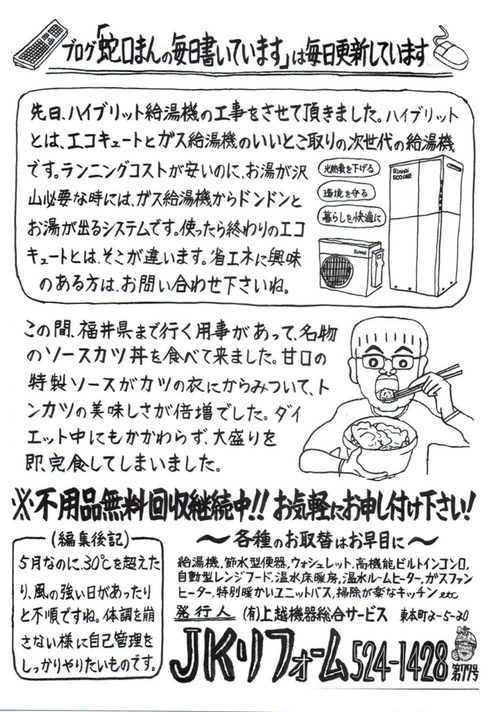 ブログ「蛇口まんの毎日書いています」は毎日更新しています
先日、ハイブリット給湯機の工事をさせて頂きました。ハイブリット
とは、エコキュートとガス給湯機のいいとこ取りの次世代の給湯機
です。ランニングコストが安いのに、お湯が沢
山必要な時には、ガス給湯機からドンドンと
お湯が出るシステムです。使ったら終わりのエコ
キュートとは、そこが違います。省エネに興味
のある方は、お問い合わせ下さいね。
光熱費を下げる
環境を守る
暮らしを快適に
Rinnai
ECOONE
RINNAI
この間、福井県まで行く用事があって、名物
のソースカツ丼を食べて来ました。甘口の
特製ソースがカツの衣にからみついて、ト
ンカツの美味しさが倍増でした。ダイ
エット中にもかかわらず、大盛りを
即、完食してしまいました。
※不用品無料回収継続中!! お気軽にお申し付け下さい!
(編集後記)
5月なのに、30℃を超えた
り、風の強い日があったり
と不順ですね。体調を崩
さない様に自己管理を
しっかりやりたいものです。
〜各種のお取替はお早目に〜
給湯機、節水型便器、ウォシュレット、高機能ビルトインコンロ、
自動型レンジフード、温水床暖房、温水ルームヒーター、ガスファン
ヒーター、特別暖かいユニットバス、掃除が楽なキッチン etc
発行人 (有)上越機器総合サービス 東本町2-5-30
JKリフォーム 524-1428